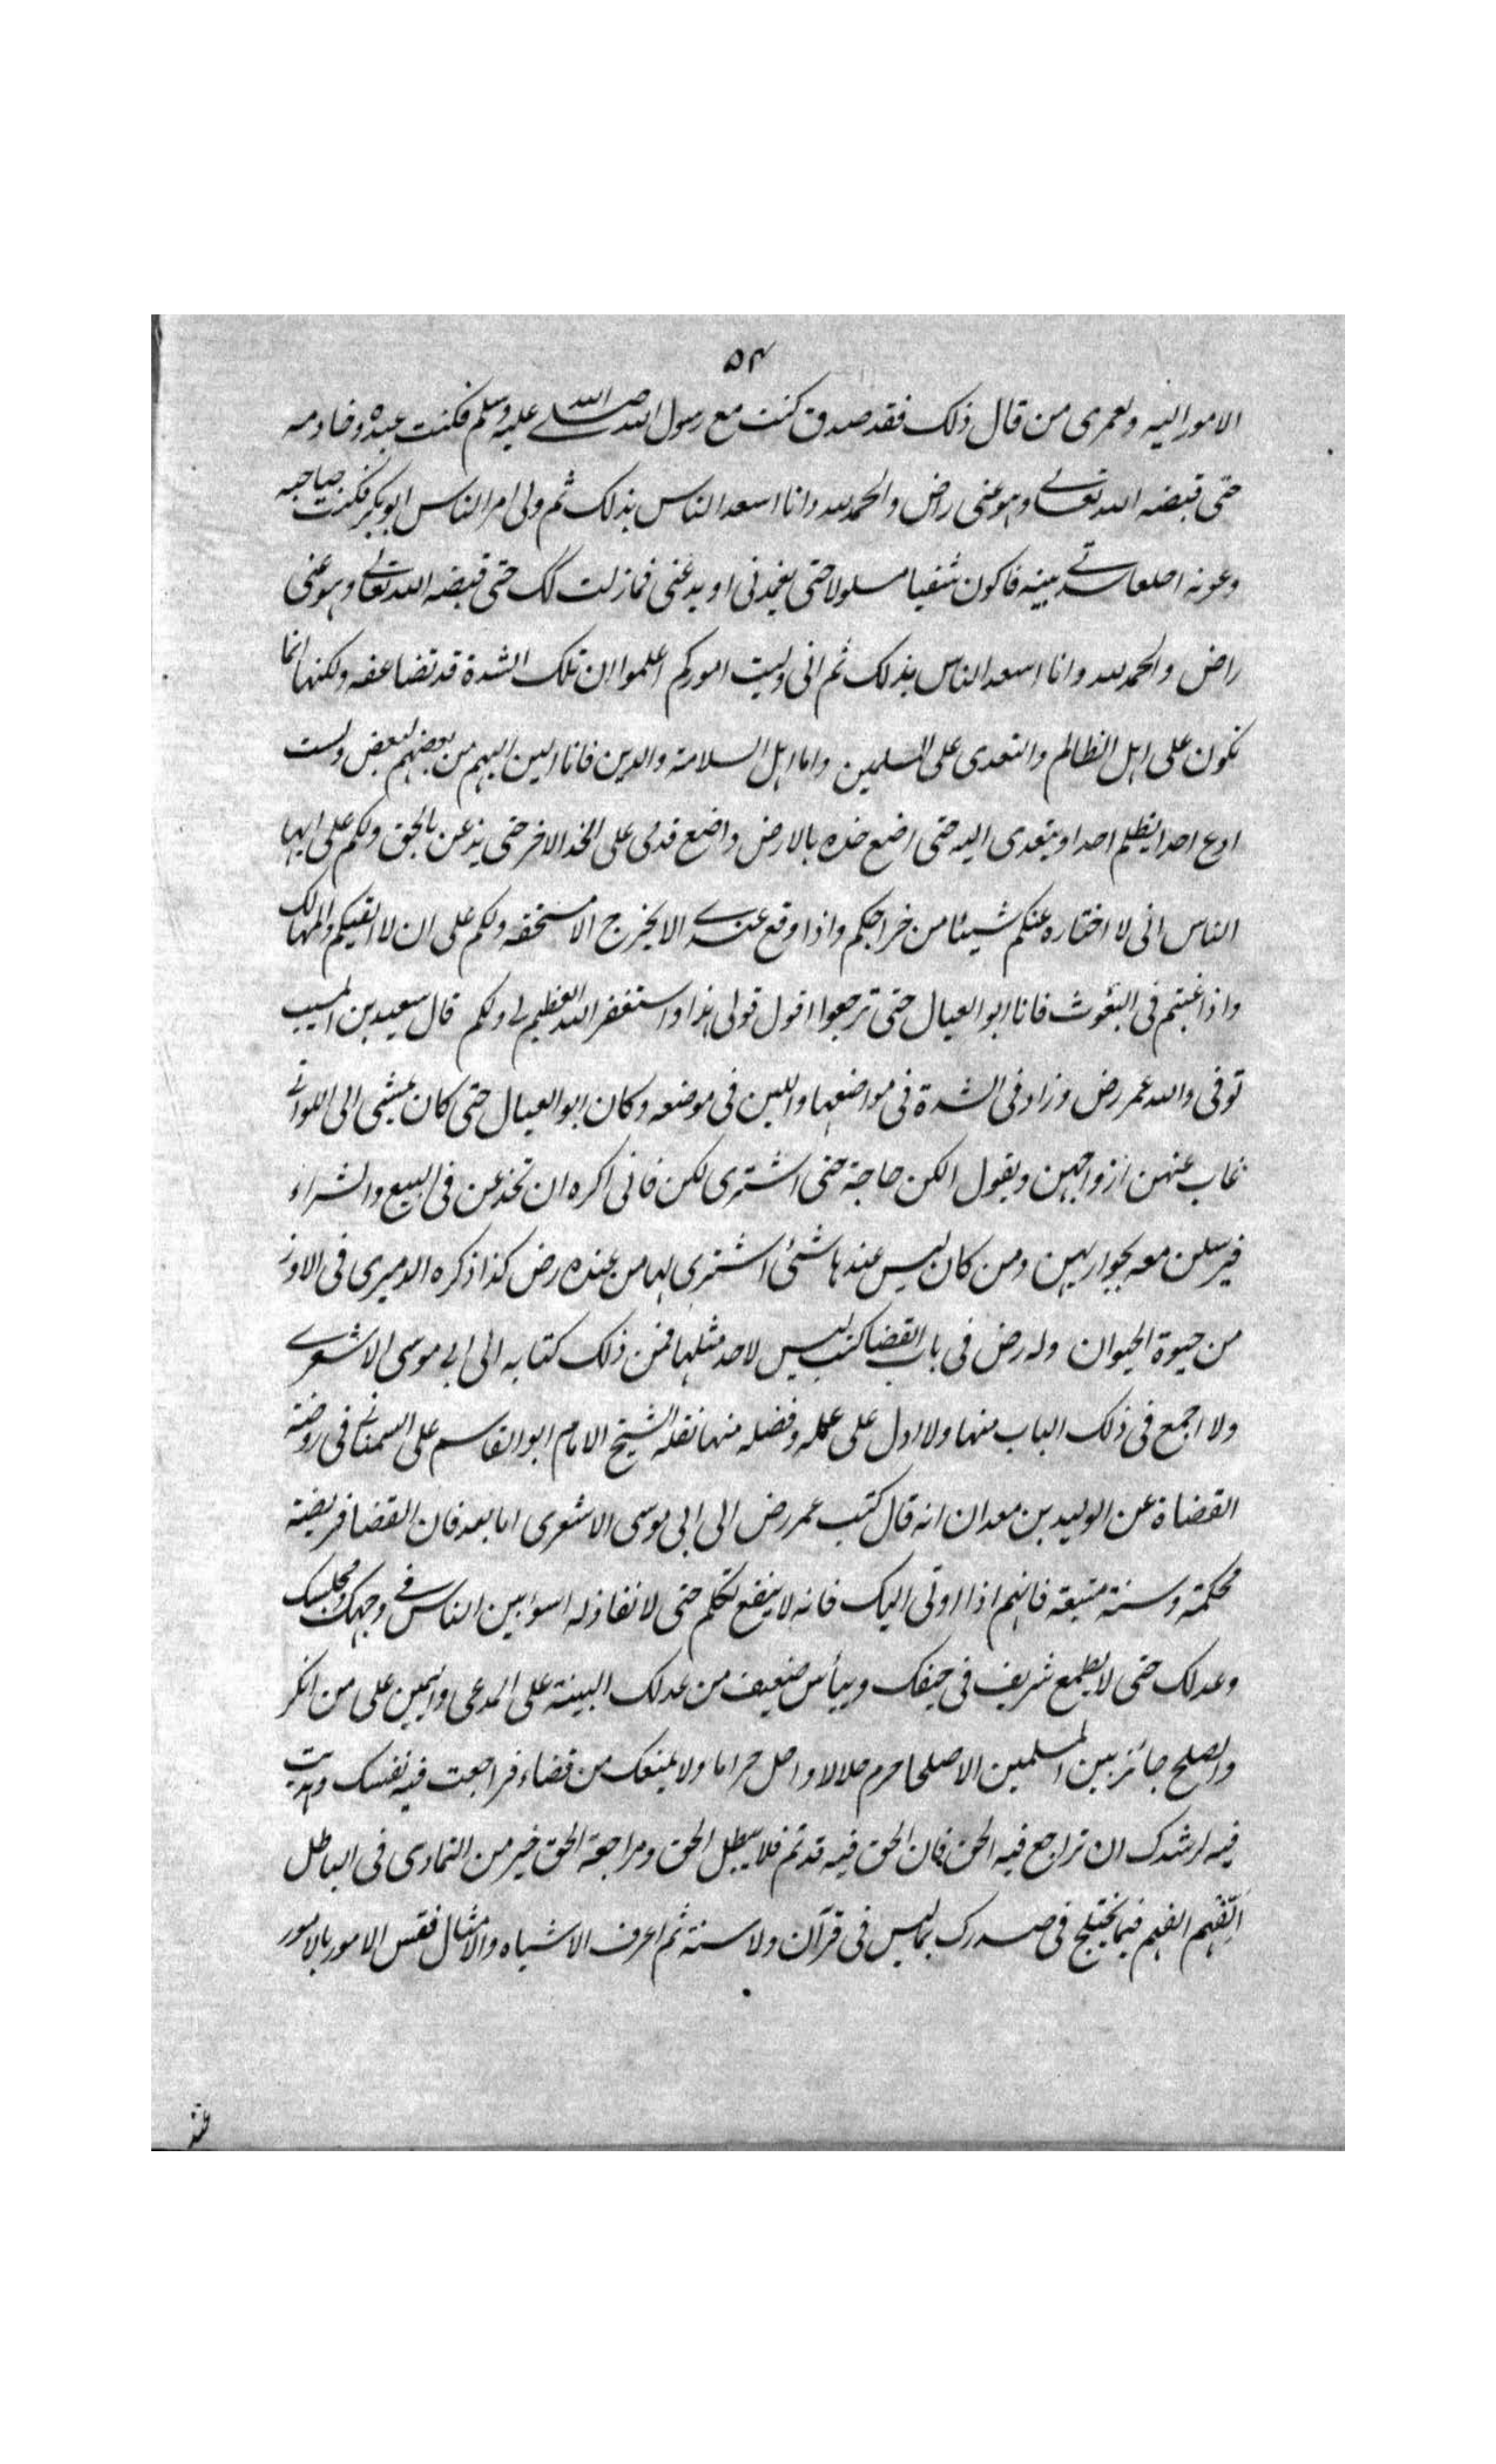 ۵۴
الامور اليه ولعمرى من قال ذلك فقد صدق كنت مع رسول الله صلى الله عليه وسلم فكنت عبده وخادمه
حتى قبضه الله تعالى وهو عنى راض والحمد لله وانا اسعد الناس بذلك ثم ولى امر الناس ابو بكر فكنت صاحبه
وعونه اخلط شدتى بلينه فاكون سيفا مسلولا حتى يغمدنى او يدعنى فما زلت كك حتى قبضه الله تعالى وهو عنى
راض والحمد لله وانا اسعد الناس بذلك ثم انى وليت اموركم اعلموا ان تلك الشدة قد تضاعفه ولكنها انما
تكون على اهل الظالم والتعدى على المسلمين واما اهل السلامة والدين فانا الين اليهم من بعضهم لبعض ولست
ادع احدا يظلم احدا ويتعدى اليه حتى اضع خده بالارض واضع قدمى على الخد الاخر حتى يذعن بالحق ولكم على ايها
الناس انى لا اختاره عنكم شيئا من خراجكم واذا وقع عندى الا يخرج الا مستحقه ولكم على ان لا القيكم والمهالك
واذا غبتم فى البعوث فانا ابو العيال حتى ترجعوا اقول قولى هذا واستغفر الله العظيم لى ولكم قال سعيد بن المسيب
توفى والله عمر رض وزاد فى الشدة فى مواضعها واللين فى موضعه وكان ابو العيال حتى كان يمشى الى اللواتى
غاب عنهن ازواجهن ويقول الكن حاجة حتى اشترى لكن فانى اكره ان تخدعن فى البيع والشراء
فيرسلن معه بجواريهن ومن كان ليس عندها شئ اشترى لها من عنده رض كذا ذكره الدميرى فى الاوز
من حيوة الحيوان وله رض فى باب القضا كتب ليس لاحد مثلها فمن ذلك كتابه الى ابى موسى الاشعرى
ولا اجمع فى ذلك الباب منها ولا ادل على عمله وفضله منها نقله الشيخ الامام ابو القاسم على السمنانى فى روضة
القضاة عن الوليد بن معدان انه قال كتب عمر رض الى ابى موسى الاشعرى اما بعد فان القضا فريضة
محكمة وسنة متبعة فافهم اذا اوتى اليك فانه لا ينفع تكلم حتى لا نفاذ له اسوا بين الناس فى وجهك ومجلسك
وعدلك حتى لا يطمع شريف فى حيفك وييأس ضعيف من عدلك البينة على المدعى واليمين على من انكر
والصلح جائز بين المسلمين الا صلحا حرم حلالا او احل حراما ولا يمنعك من قضاء فراجعت فيه نفسك وهديت
فيه لرشدك ان تراجع فيه الحق فان الحق فيه قد تم فلا يبطل الحق ومراجعة الحق خير من التمادى فى الباطل
الفهم الفهم فيما يختلج فى صدرك بما ليس فى قرآن ولا سنة ثم اعرف الاشباه والامثال فقس الامور بالامور